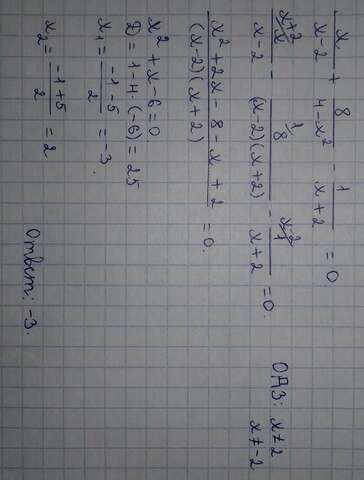 x/(x-2) + 8/(4-x²) - 1/(x+2) = 0
x^(x+2)/(x-2) - 8^(1)/((x-2)(x+2)) - 1^(x-2)/(x+2) = 0.
ОДЗ: x ≠ 2
x ≠ -2
(x² + 2x - 8 - x + 2)/((x-2)(x+2)) = 0.
x² + x - 6 = 0
D = 1 - 4·(-6) = 25
x₁ = (-1-5)/2 = -3.
x₂ = (-1+5)/2 = 2
Ответ: -3.